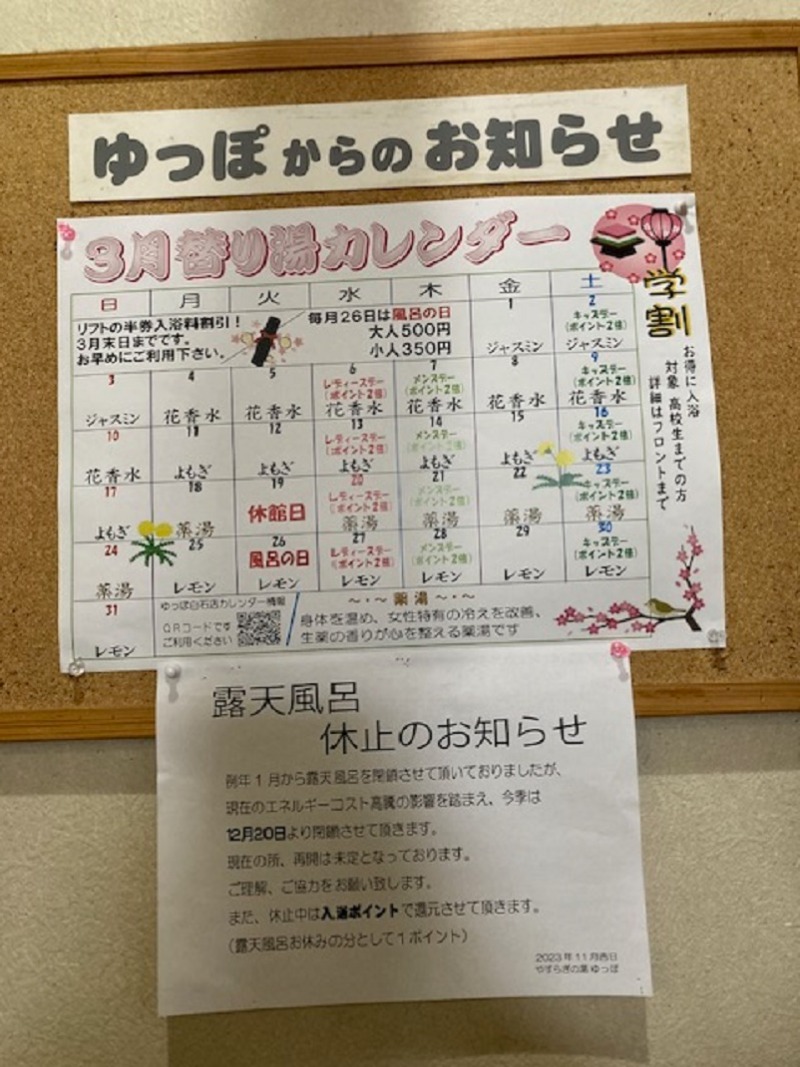 ゆっぽからのお知らせ
3月替り湯カレンダー
日 月 火 水 木 金 土
リフトの半券入浴料割引！
3月末日までです。
お早めにご利用下さい。
毎月26日は風呂の日
大人500円
小人350円
1
ジャスミン
2
キッズデー
(ポイント2倍)
ジャスミン
3
ジャスミン
4
花香水
5
花香水
6
レディースデー
(ポイント2倍)
花香水
7
メンズデー
(ポイント2倍)
花香水
8
花香水
9
キッズデー
(ポイント2倍)
花香水
10
花香水
11
よもぎ
12
よもぎ
13
レディースデー
(ポイント2倍)
よもぎ
14
メンズデー
(ポイント2倍)
よもぎ
15
よもぎ
16
キッズデー
(ポイント2倍)
よもぎ
17
よもぎ
18
薬湯
19
休館日
20
レディースデー
(ポイント2倍)
薬湯
21
メンズデー
(ポイント2倍)
薬湯
22
薬湯
23
キッズデー
(ポイント2倍)
薬湯
24
薬湯
25
レモン
26
風呂の日
レモン
27
レディースデー
(ポイント2倍)
レモン
28
メンズデー
(ポイント2倍)
レモン
29
レモン
30
キッズデー
(ポイント2倍)
レモン
31
レモン
ゆっぽ白石店カレンダー情報
QRコードです
ご利用ください
～・～ 薬湯 ～・～
身体を温め、女性特有の冷えを改善、
生薬の香りが心を整える薬湯です
学割
お得に入浴
対象 高校生までの方
詳細はフロントまで
露天風呂
休止のお知らせ
例年1月から露天風呂を閉鎖させて頂いておりましたが、
現在のエネルギーコスト高騰の影響を踏まえ、今季は
12月20日より閉鎖させて頂きます。
現在の所、再開は未定となっております。
ご理解、ご協力をお願い致します。
また、休止中は入浴ポイントで還元させて頂きます。
(露天風呂お休みの分として1ポイント)
2023年11月吉日
やすらぎの湯 ゆっぽ